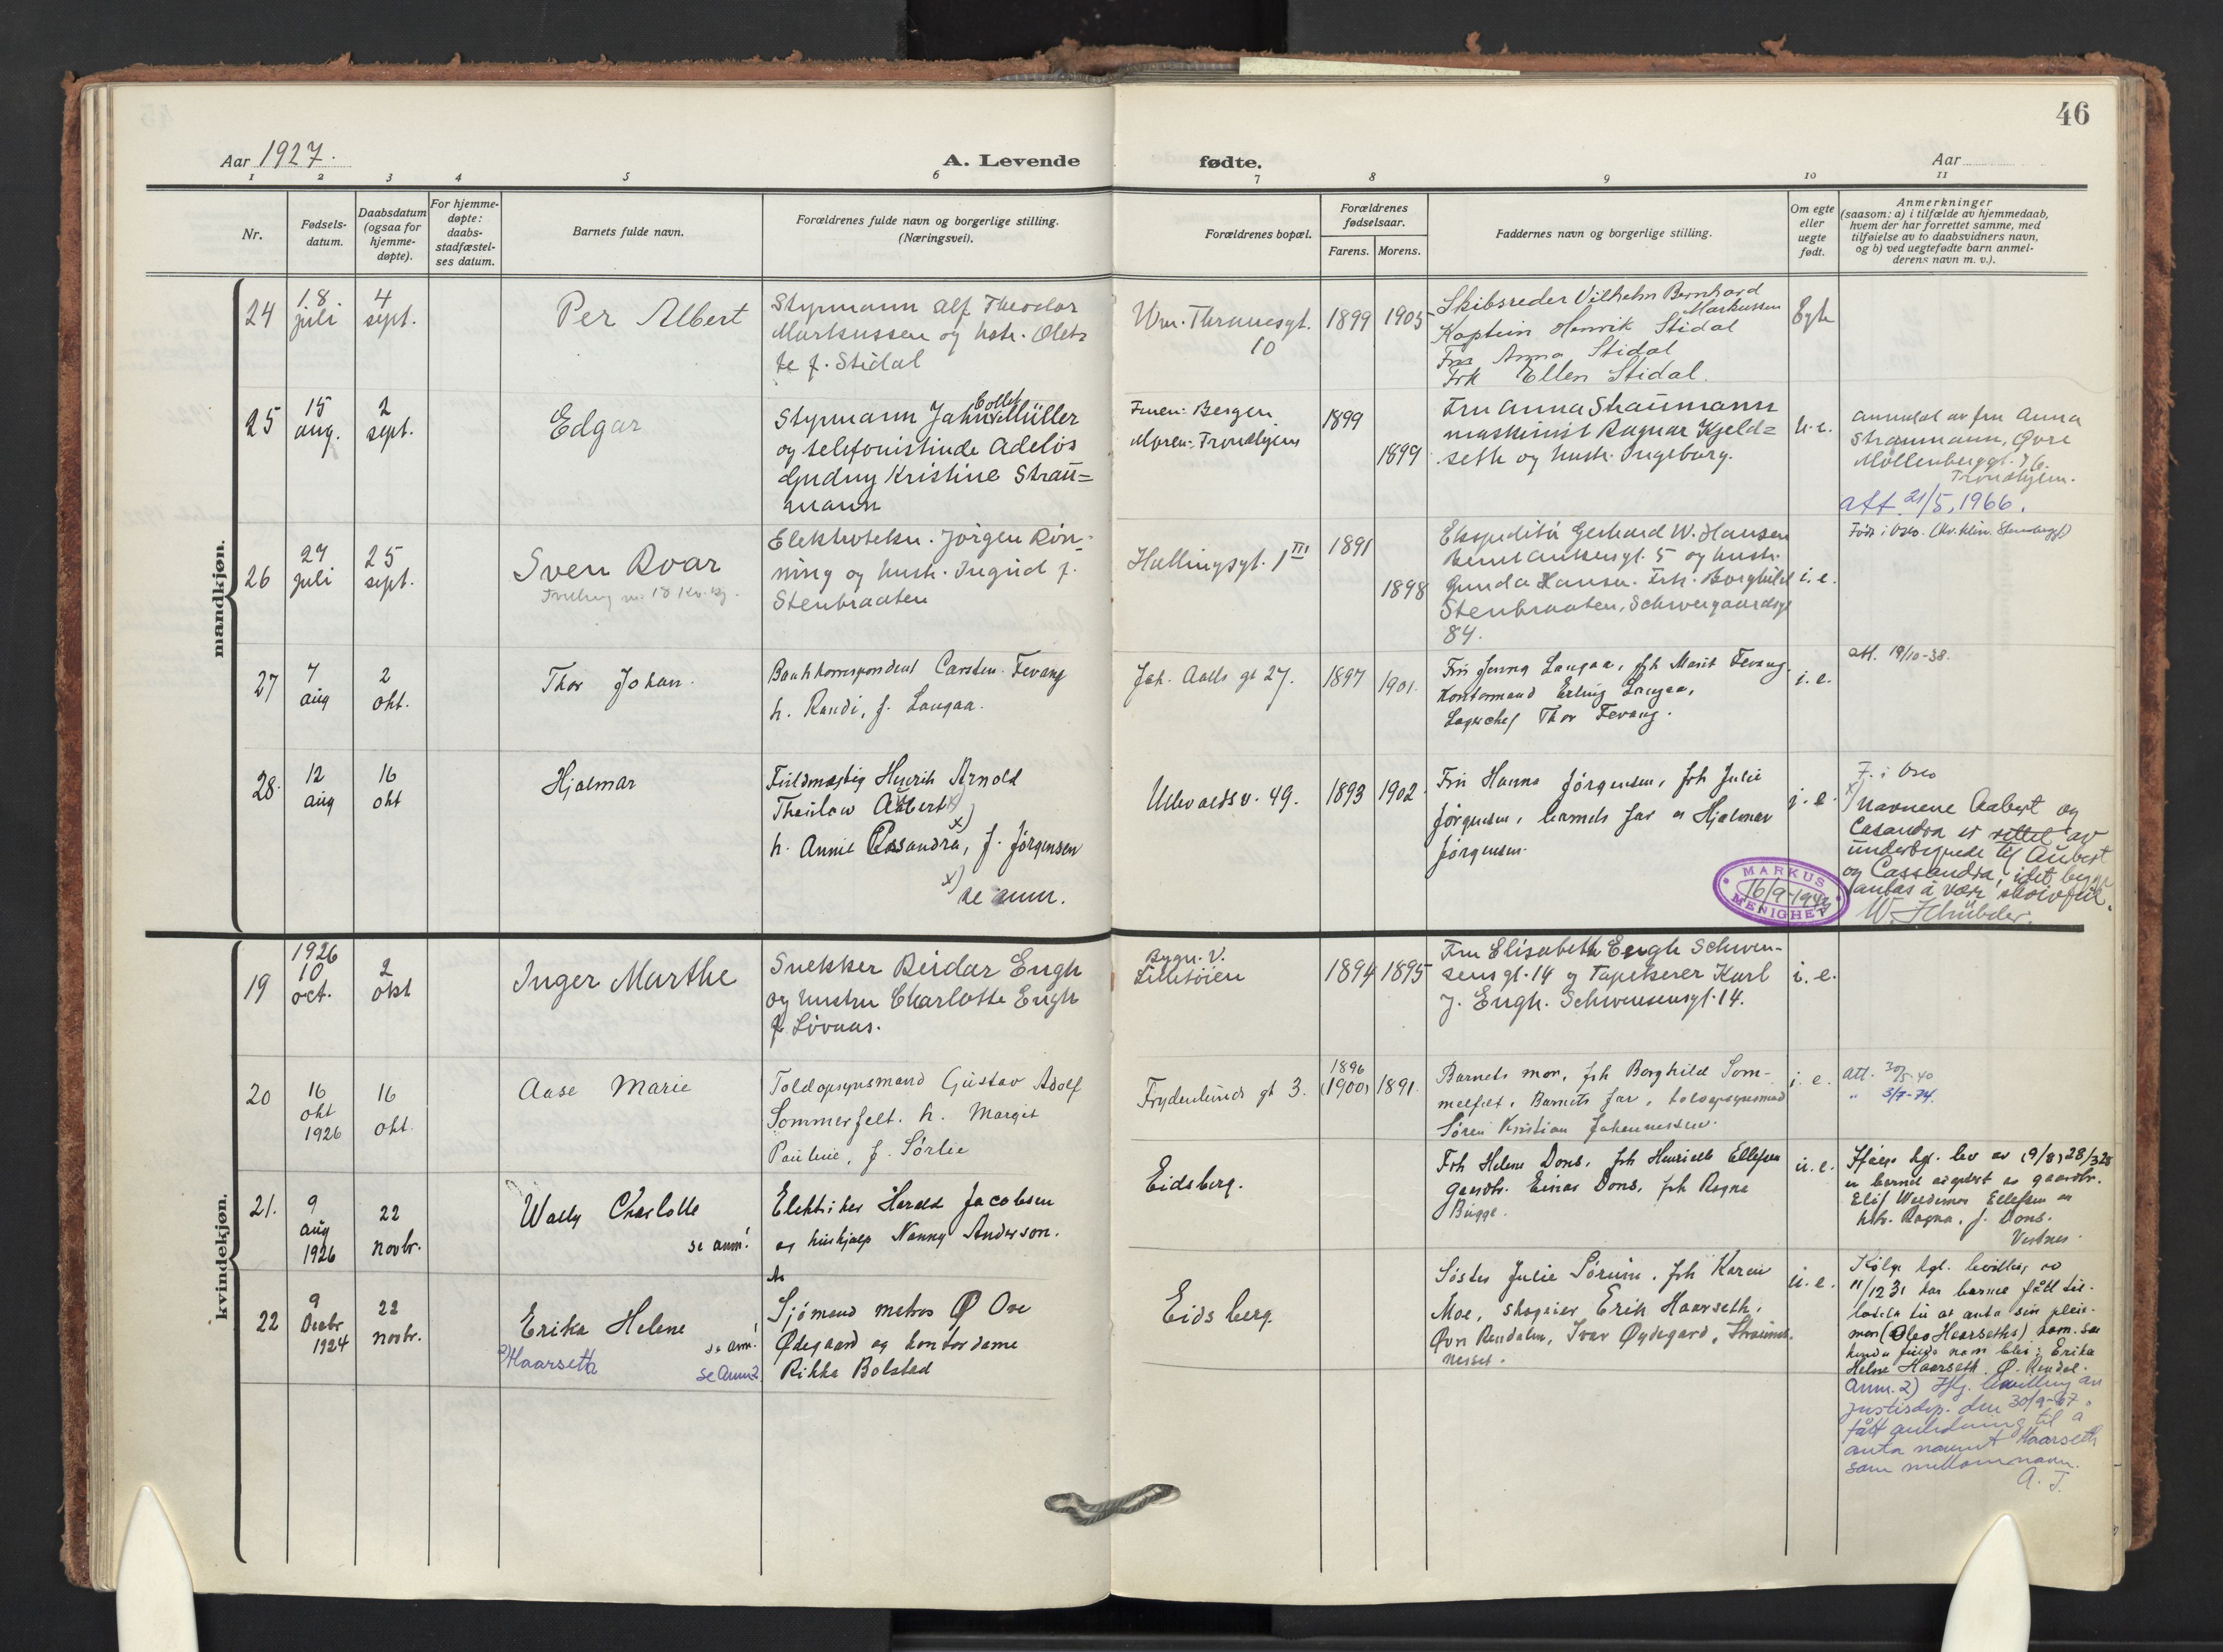 46
Aar 1927.
A. Levende
fødte.
Aar
1 2 3 4 5 6 7 8 9 10 11
Nr.
Fødsels-
datum.
Daabsdatum
(ogsaa for
hjemme-
døpte).
For hjemme-
døpte:
daabs-
stadfæstel-
ses datum.
Barnets fulde navn.
Forældrenes fulde navn og borgerlige stilling.
(Næringsvei).
Forældrenes bopæl.
Forældrenes
fødselsaar.
Farens. Morens.
Faddernes navn og borgerlige stilling.
Om egte
eller
uegte
født.
Anmerkninger
(saasom: a) i tilfælde av hjemmedaab,
hvem der har forrettet samme, med
tilføielse av to daabsvidners navn,
og b) ved uegtefødte barn anmel-
derens navn m. v.).
mandkjøn.
24
18.
juli
4
sept.
Per Albert
Styrmann Alf Theodor
Markussen og hstr. Olet-
te f. Stidal
Wm. Thranesgt.
10
1899 1905
Skibsreder Vilhelm Bernhard
Markussen
Kaptein Henrik Stidal
Fru Anna Stidal
Frk Ellen Stidal.
Egte
25
15
aug.
2
sept.
Edgar
Collet
Styrmann Jahn Müller
og telefonistinde Adeløs
Gudny Kristine Strau=
mann
Faren: Bergen
Moren: Trondhjem
1899
1899
Fru Anna Straumann
maskinist Ragnar Kjeld=
seth og hustr. Ingeborg.
u.e.
anmeldt av fru Anna
Straumann, Øvre
Møllenberggt. 76.
Trondhjem.
att. 21/5, 1966.
26
27
juli
25
sept.
Sven Roar
Elektrotekn. Jørgen Røn-
ning og hustr. Ingrid f.
Stenbraaten
Hallingsgt. 1 III
1891
1898
Ekspeditør Gerhard W. Hansen
Bernt Ankersgt. 5 og hustr.
Gunda Hansen. Frk. Borghild
Stenbraaten, Schweigaardsgt
84.
i. e.
Født i Oslo. (Kv. klin. Stensberggt)
27
7
aug
2
okt.
Thor Johan.
Bankkorrespondent Carsten Fevang
h. Randi, f. Langaa.
Joh. Aalls gt 27.
1897 1901.
Fru Jenny Langaa, frk Marit Fevang.
Kontormand Erling Langaa,
Lagerchef Thor Fevang.
i. e.
att. 19/10-38.
28.
12
aug
16
okt
Hjalmar
Fuldmægtig Henrik Arnold
Thaulow Aubert x)
h. Annie Cassandra, f. Jørgensen
x)
se anm.
Ullevaalsv. 49.
1893 1902.
Fru Hanna Jørgensen, frk Julie
Jørgensen, barnets far og Hjalmar
Jørgensen.
i. e.
F. i Oslo
x) Navnene Aabert og
Casandra er rettet av
undertegnede til Aubert
og Cassandra, idet begge
antas å være skrivefeil.
W. Schübeler.
MARKUS
16/9-1942
MENIGHET
kvindekjøn.
19
1926
10
oct.
2
okt
Inger Marthe
Snekker Reidar Engh
og hustru Charlotte Engh
f. Løvaas.
Bygn. V.
Lilletøien
1894 1895
Fru Elisabeth Engh Schwen-
sensgt. 14 og Tapetserer Karl
J. Engh. Schwensensgt. 14.
i. e.
20
16
okt
1926
16
okt.
Aase Marie
Toldopsynsmand Gustav Adolf
Sommerfelt. h. Margit
Pauline, f. Sørlie
Frydenlunds gt 3.
1896
(1900) 1891.
Barnets mor, frk Borghild Som-
merfelt, Barnets far, toldopsynsmand
Søren Kristian Johannessen.
i. e.
att. 30/5-40
" 3/7-74.
21.
9
aug
1926
22
novbr.
Wally Charlotte
se anm!
Elektriker Harald Jacobsen
og huskjelp Nanny Anderson.
Eidsberg.
Frk Helene Dons, frk Henriette Ellefsen
Gaardbr. Einar Dons, frk Ragna
Bugge.
u. e.
Ifølge kgl. bev av (9/8) 28/3 28
er barnet adoptert av gaardbr.
Eilif Waldemar Ellefsen og
htr. Ragna, f. Dons.
Vestnes.
22
9
Decbr
1924
22
novbr.
Erika Helene
se anm!
2) Haarseth
se Anm 2
Sjømand matros Ø Ove
Ødegaard og kontordame
Rikka Bolstad
Eidsberg
Søster Julie Sørum, frk Karen
Moe, skogeier Erik Haarseth,
Øvre Rendalen, Ivar Øydegard, Straumsnesset.
u. e.
Ifølge kgl. bevilling av
11/12 31 har barnet fått til-
latelse til at anta sin pleie-
mor (Olea Haarseths) navn. så
hendes fulde navn blir: Erika
Helene Haarseth. Ø. Rendal.
Anm. 2) Iflg. bevilling av
Justisdep. den 30/9-67
fått anledning til å
anta navnet Haarseth
som mellomnavn.
A. T.